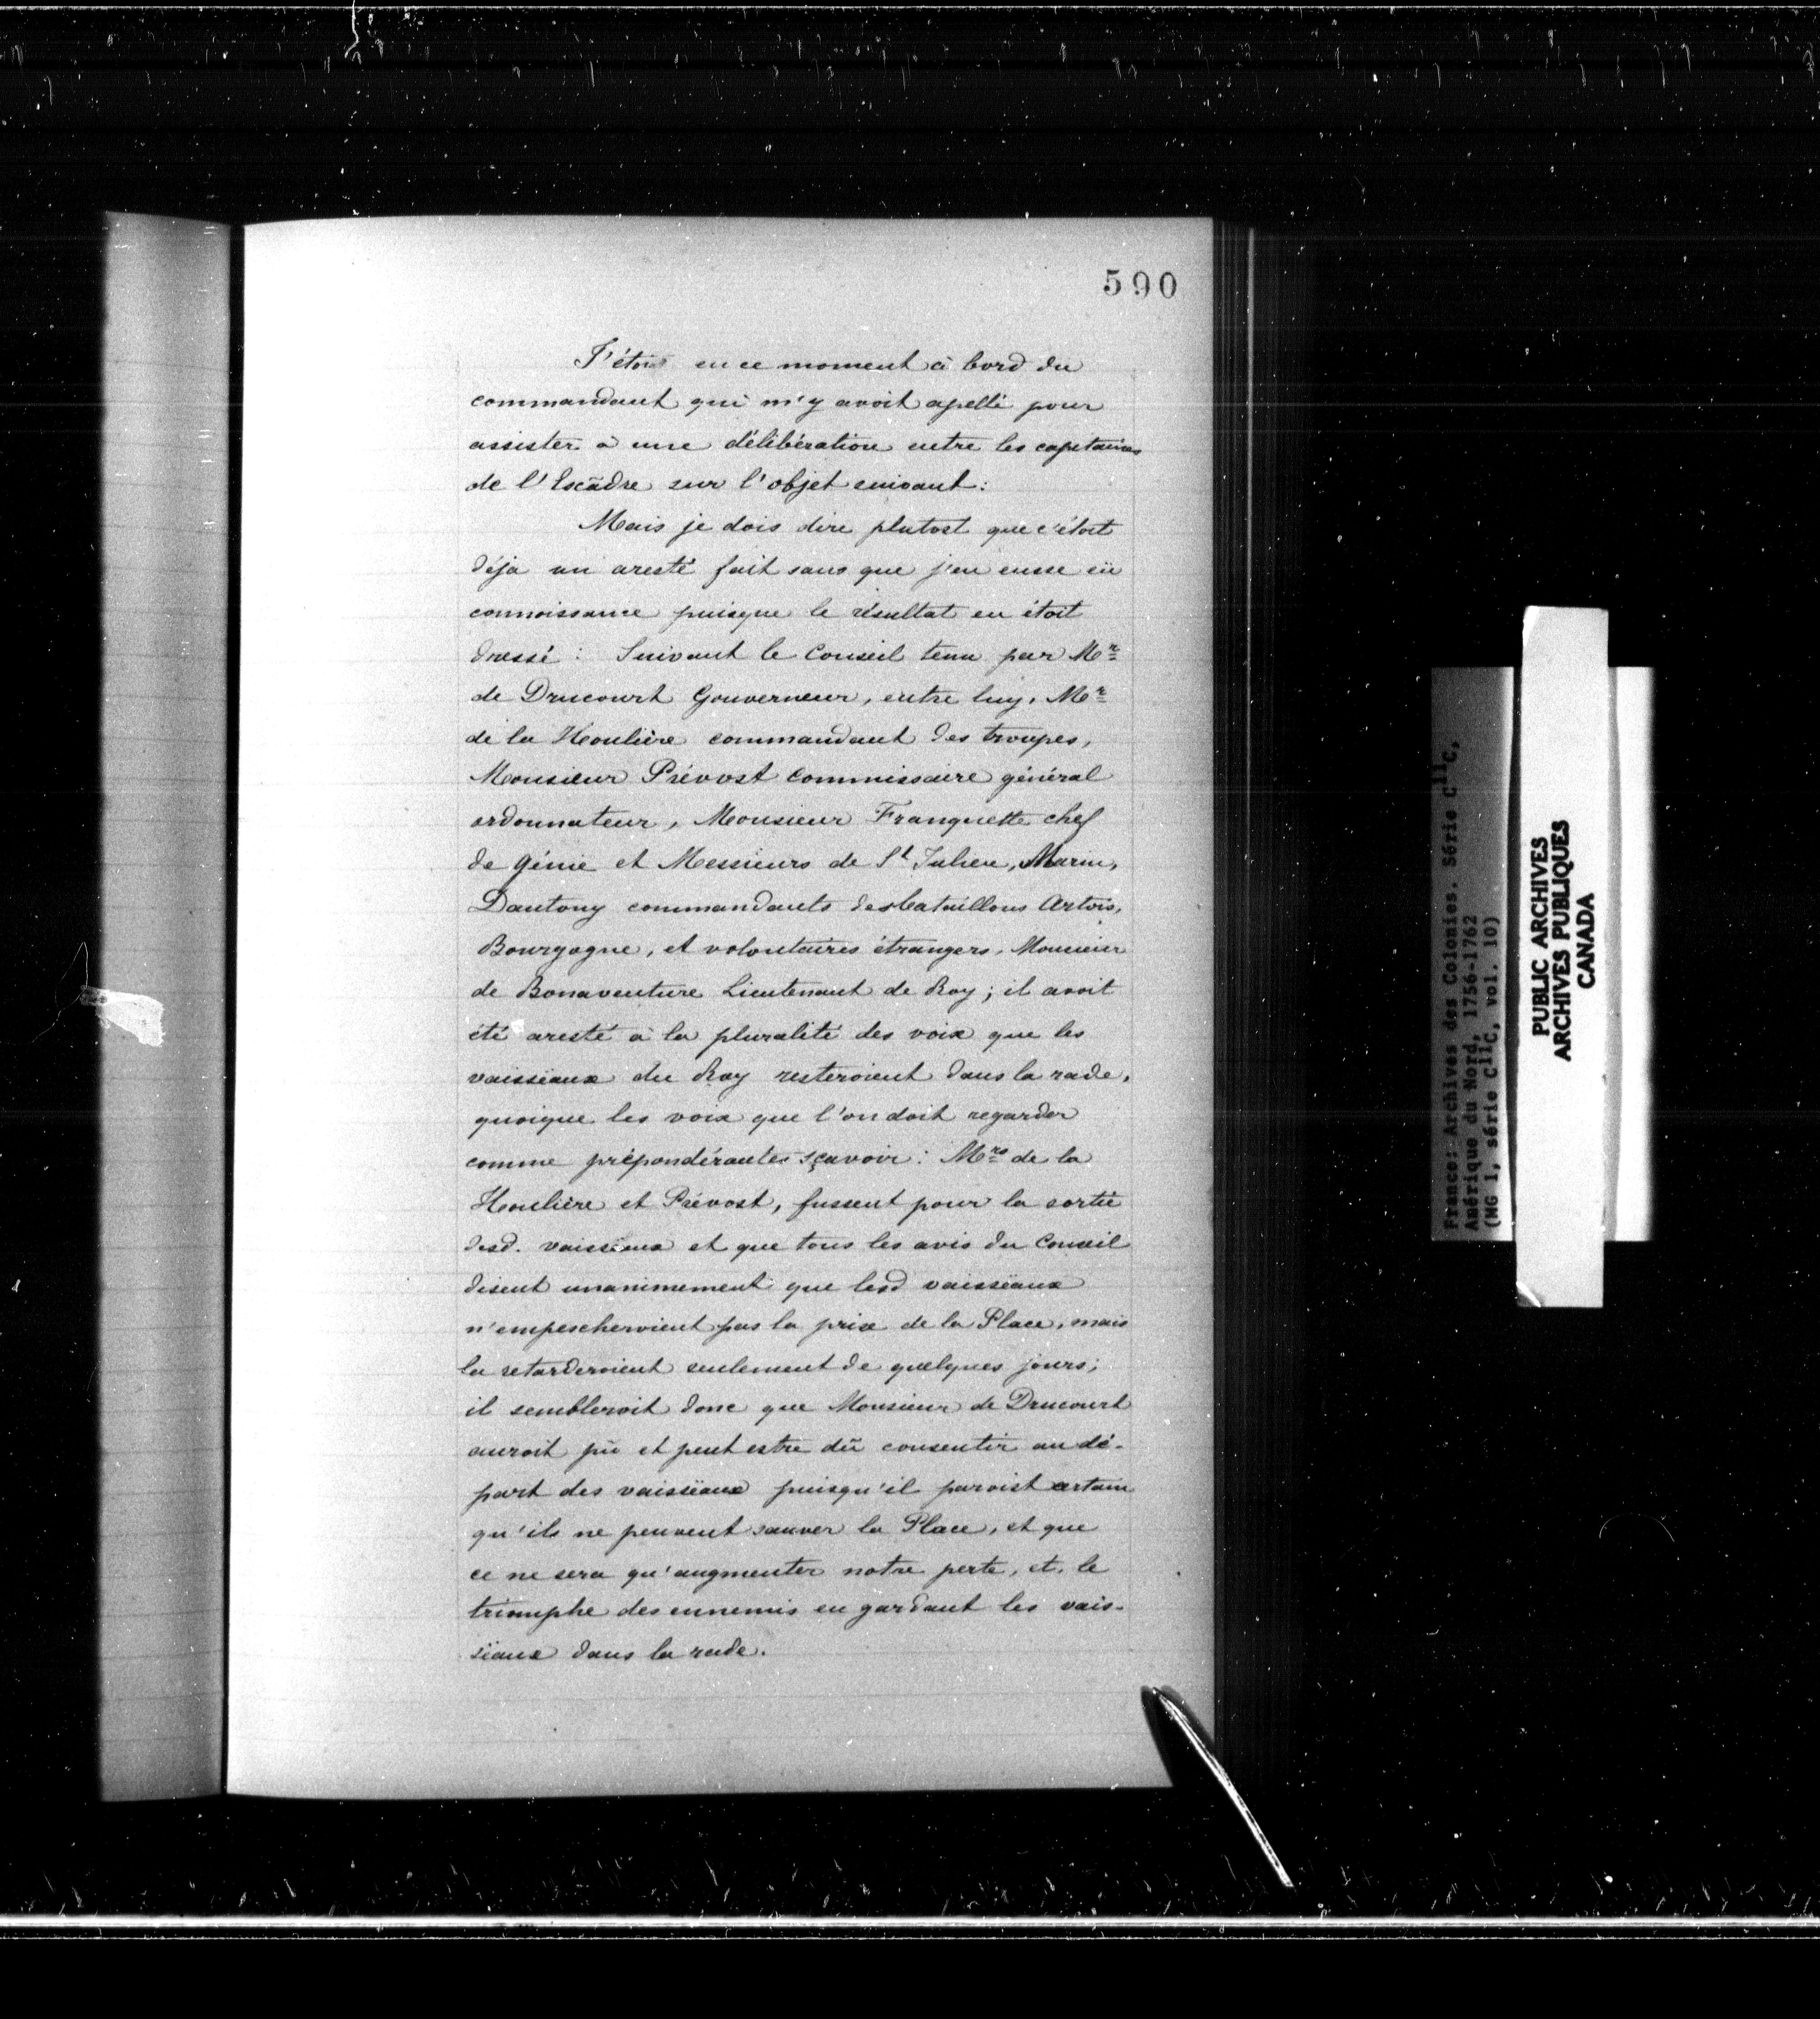 590
J'étois en ce moment à bord du
commandant qui m'y avoit apellé pour
assister à une délibération entre les capitaines
de l'Escadre sur l'objet suivant:
Mais je dois dire plutost que c'étoit
déja un aresté fait sans que j'en eusse eü
connoissance puisque le résultat en étoit
dressé: Suivant le Conseil tenu par Mr
de Drucourt Gouverneur, entre luy, Mr
de la Houlière commandant des troupes,
Monsieur Prévost Commissaire général
ordonnateur, Monsieur Franquette chef
de génie et Messieurs de St Julien, Marin,
Dantony commandants des bataillons Artois,
Bourgogne, et volontaires étrangers, Monsieur
de Bonaventure Lieutenant de Roy; il avoit
été aresté à la pluralité des voix que les
vaisseaux du Roy resteroient dans la rade,
quoique les voix que l'on doit regarder
comme prépondérantes sçavoir: Mrs de la
Houlière et Prévost, fussent pour la sortie
desd. vaisseaux et que tous les avis du Conseil
disent unanimement que lesd vaisseaux
n'empescheroient pas la prise de la Place, mais
la retarderoient seulement de quelques jours;
il sembleroit donc que Monsieur de Drucourt
auroit pü et peut estre dü consentir au dé-
part des vaisseaux puisqu'il paroist certain
qu'ils ne peuvent sauver la Place, et que
ce ne sera qu'augmenter notre perte, et le
triomphe des ennemis en gardant les vais-
seaux dans la rade.
France: Archives des Colonies. Série C11C,
Amérique du Nord, 1756-1762
(MG 1, série C11C, vol. 10)
PUBLIC ARCHIVES
ARCHIVES PUBLIQUES
CANADA